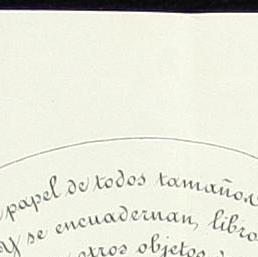 papel de todos tamaños
y se encuadernan, libro
otros objetos